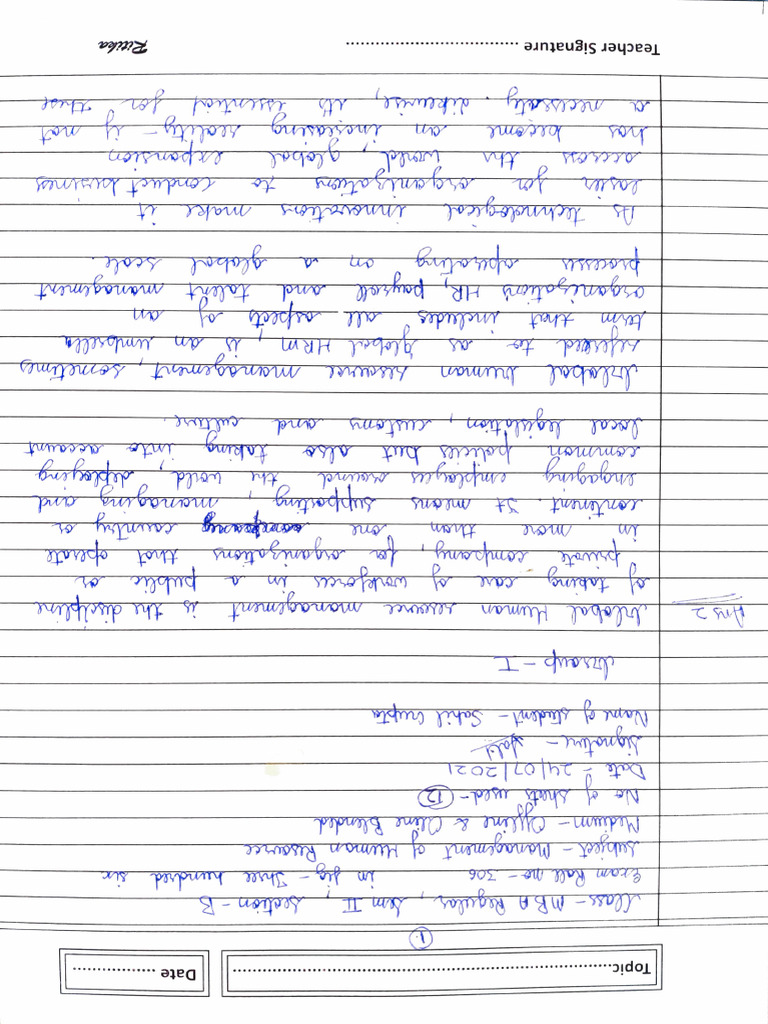 Topic........................................................................
Date ....................
1.
Class - MBA Regular, Sem II, Section - B
Exam Roll no - 306 in fig - Three hundred six
Subject - Management of Human Resource
Medium - Offline & Oline Blended
No of sheets used - 12
Date - 24/07/2021
Signature - Sahil
Name of student - Sahil Gupta
Group - I
Ans 2 Global Human resource management is the discipline
of taking care of workforces in a public or
private company, for organizations that operate
in more than one country or
contenent. It means supporting, managing and
engaging employees around the world, deploying
common policies but also taking into account
local legislation, customs and culture.
Global human resource management, sometimes
refereed to as global HRM, is an umbrella
term that includes all aspects of an
organization's HR, payroll and talent management
processes operating on a global scale.
As technological innovations make it
easier for organizations to conduct business
accross the world, global expansion
has become an increasing reality - if not
a necessaty. Likewise, its essential for these
Teacher Signature ....................................
Ritika